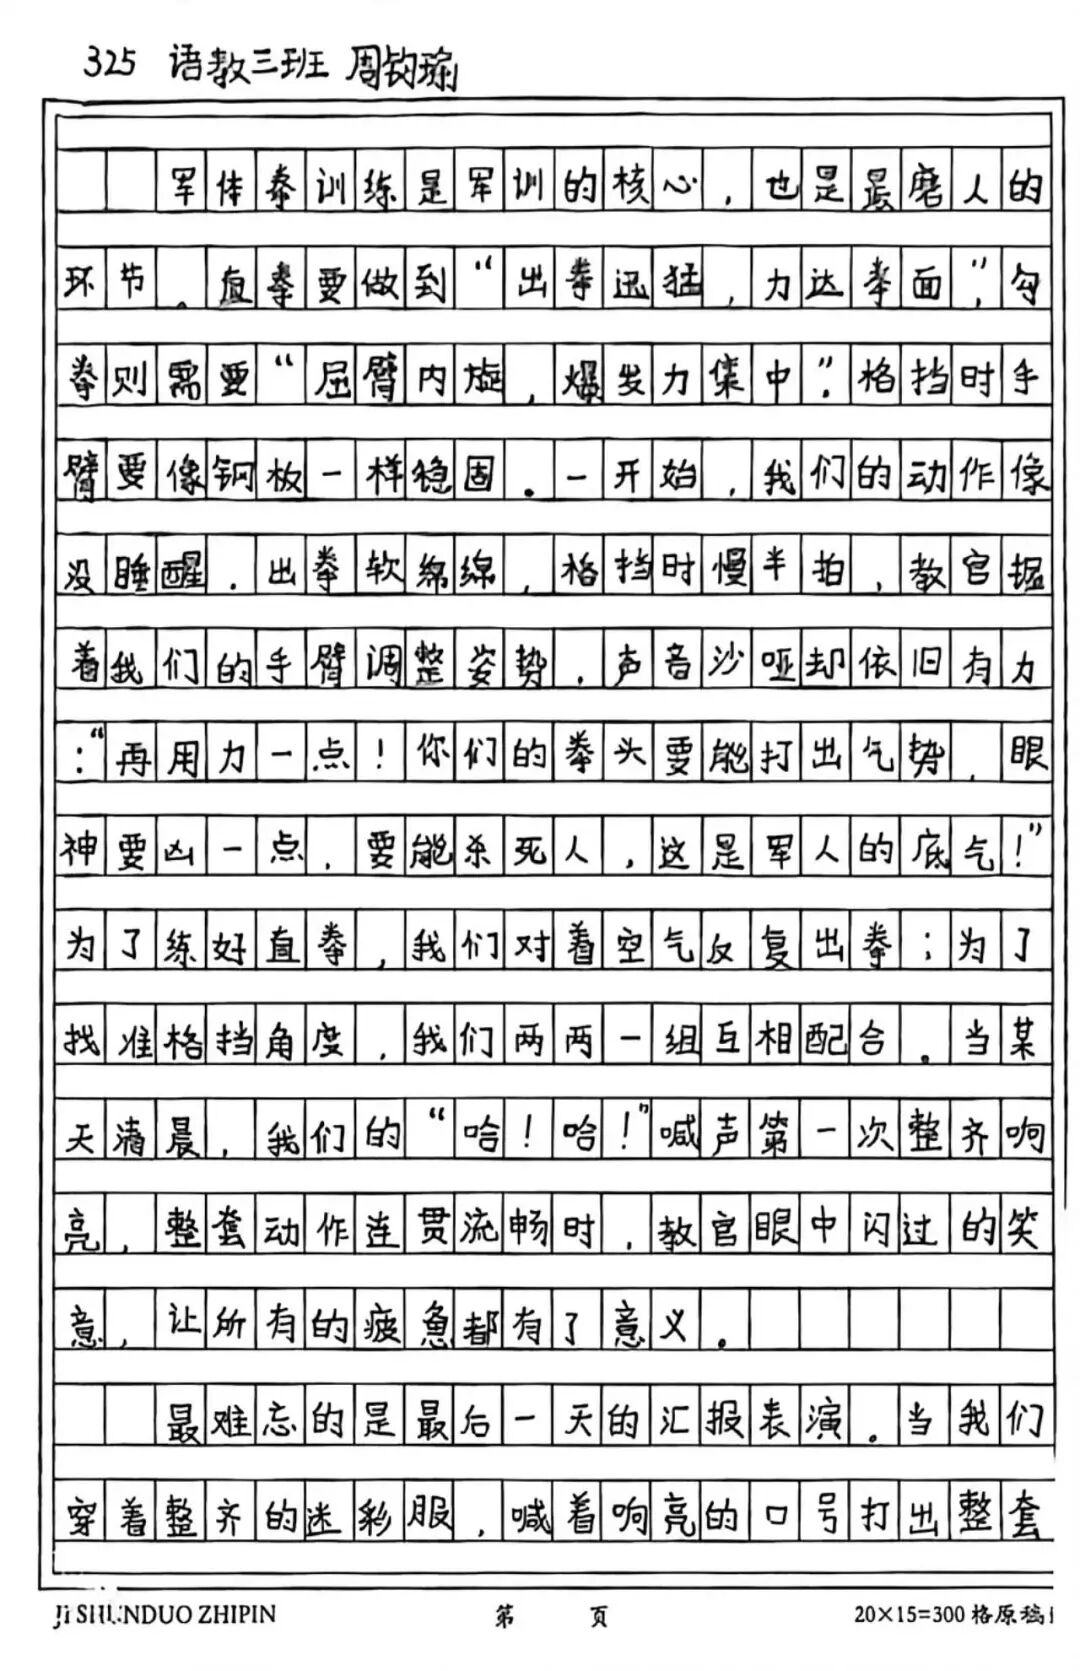 325 语教三班 周钧瑜
军体拳训练是军训的核心，也是最磨人的
环节。直拳要做到“出拳迅猛，力达拳面”，勾
拳则需要“屈臂内旋，爆发力集中”。格挡时手
臂要像钢板一样稳固。一开始，我们的动作像
没睡醒，出拳软绵绵，格挡时慢半拍，教官握
着我们的手臂调整姿势，声音沙哑却依旧有力
：“再用力一点！你们的拳头要能打出气势，眼
神要凶一点，要能杀死人，这是军人的底气！”
为了练好直拳，我们对着空气反复出拳；为了
找准格挡角度，我们两两一组互相配合。当某
天清晨，我们的“哈！哈！”喊声第一次整齐响
亮，整套动作连贯流畅时，教官眼中闪过的笑
意，让所有的疲惫都有了意义。
最难忘的是最后一天的汇报表演。当我们
穿着整齐的迷彩服，喊着响亮的口号打出整套
Ji SHUNDUO ZHIPIN 第 页 20×15=300 格原稿